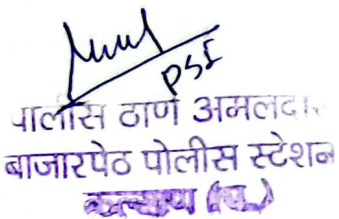 PSI
पोलीस ठाणे अमलदार
बाजारपेठ पोलीस स्टेशन
कल्याण (प.)